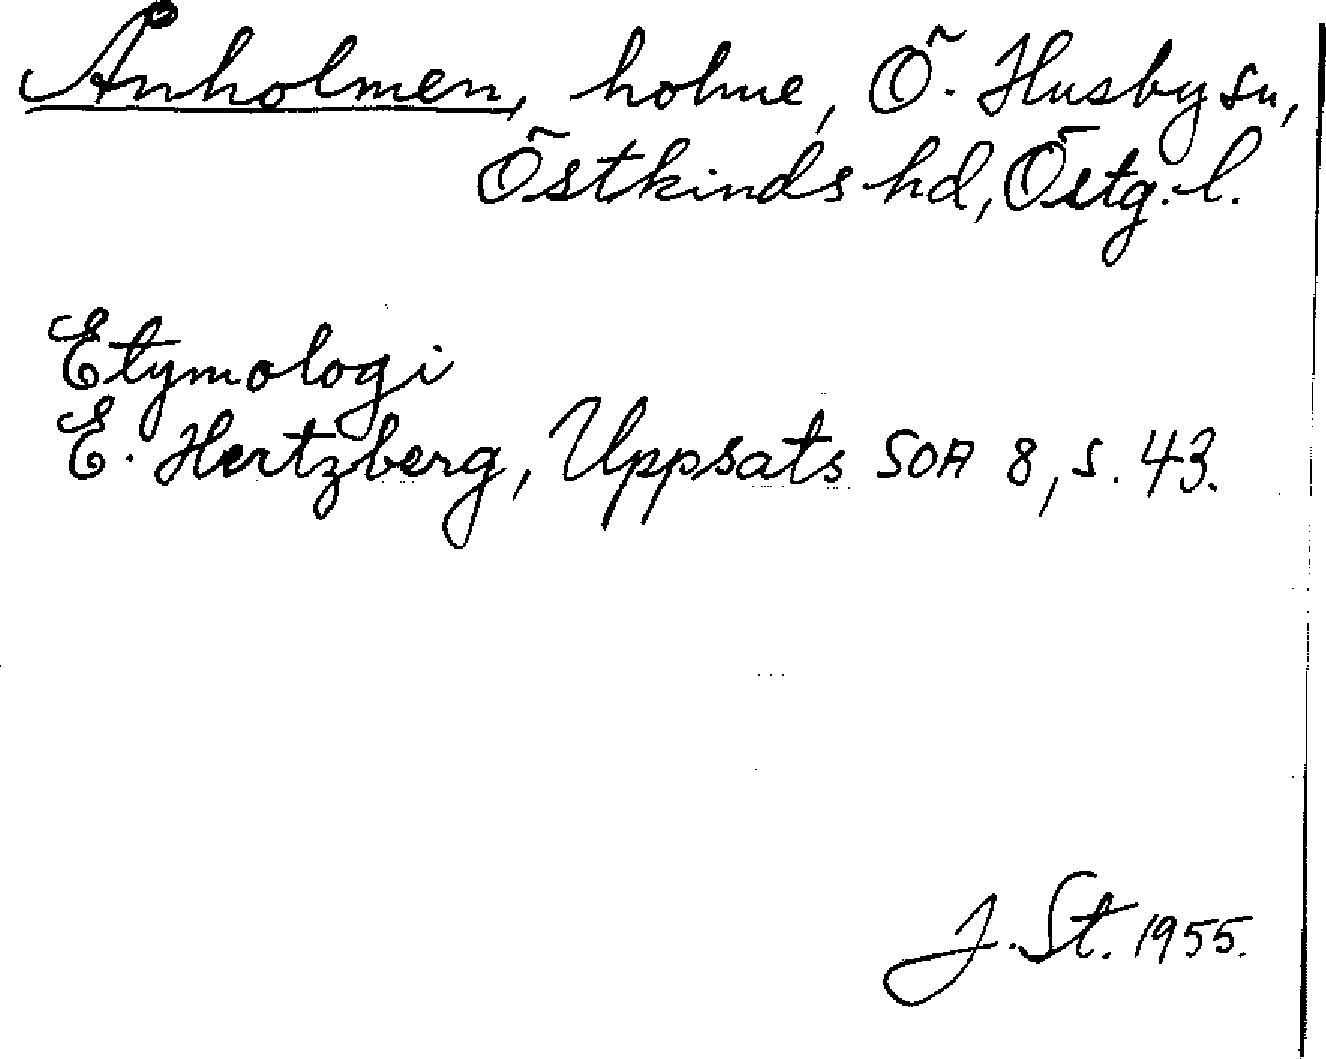 Ånholmen, holme, Ö. Husby sn,
Östkinds hd, Östg. l.
Etymologi
E. Hertzberg, Uppsats SOA 8, s. 43.
J. St. 1955.